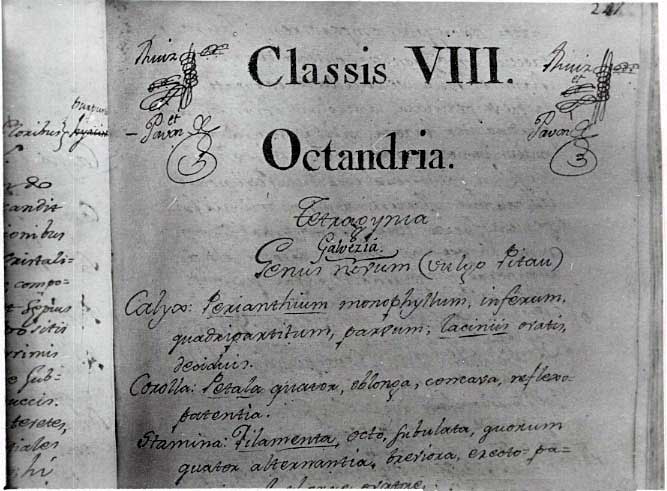 247
Ruiz
et
Pavon
Classis VIII.
Ruiz
et
Pavon
Octandria.
Tetragynia
Galvezia.
Genus novum (vulgo Pitau)
Calyx: Perianthium monophyllum, inferum,
quadripartitum, parvum; laciniis ovatis,
deciduis.
Corolla: Petala quator, oblonga, concava, reflexo-
patentia.
Stamina: Filamenta, octo, subulata, quorum
quator alternantia, breviora, erecto-pa-
floribus
do
candit
ionibus
cristali-
compo-
et sepius
ositis
rimis
e sub-
accis.
teretes,
iales
hi